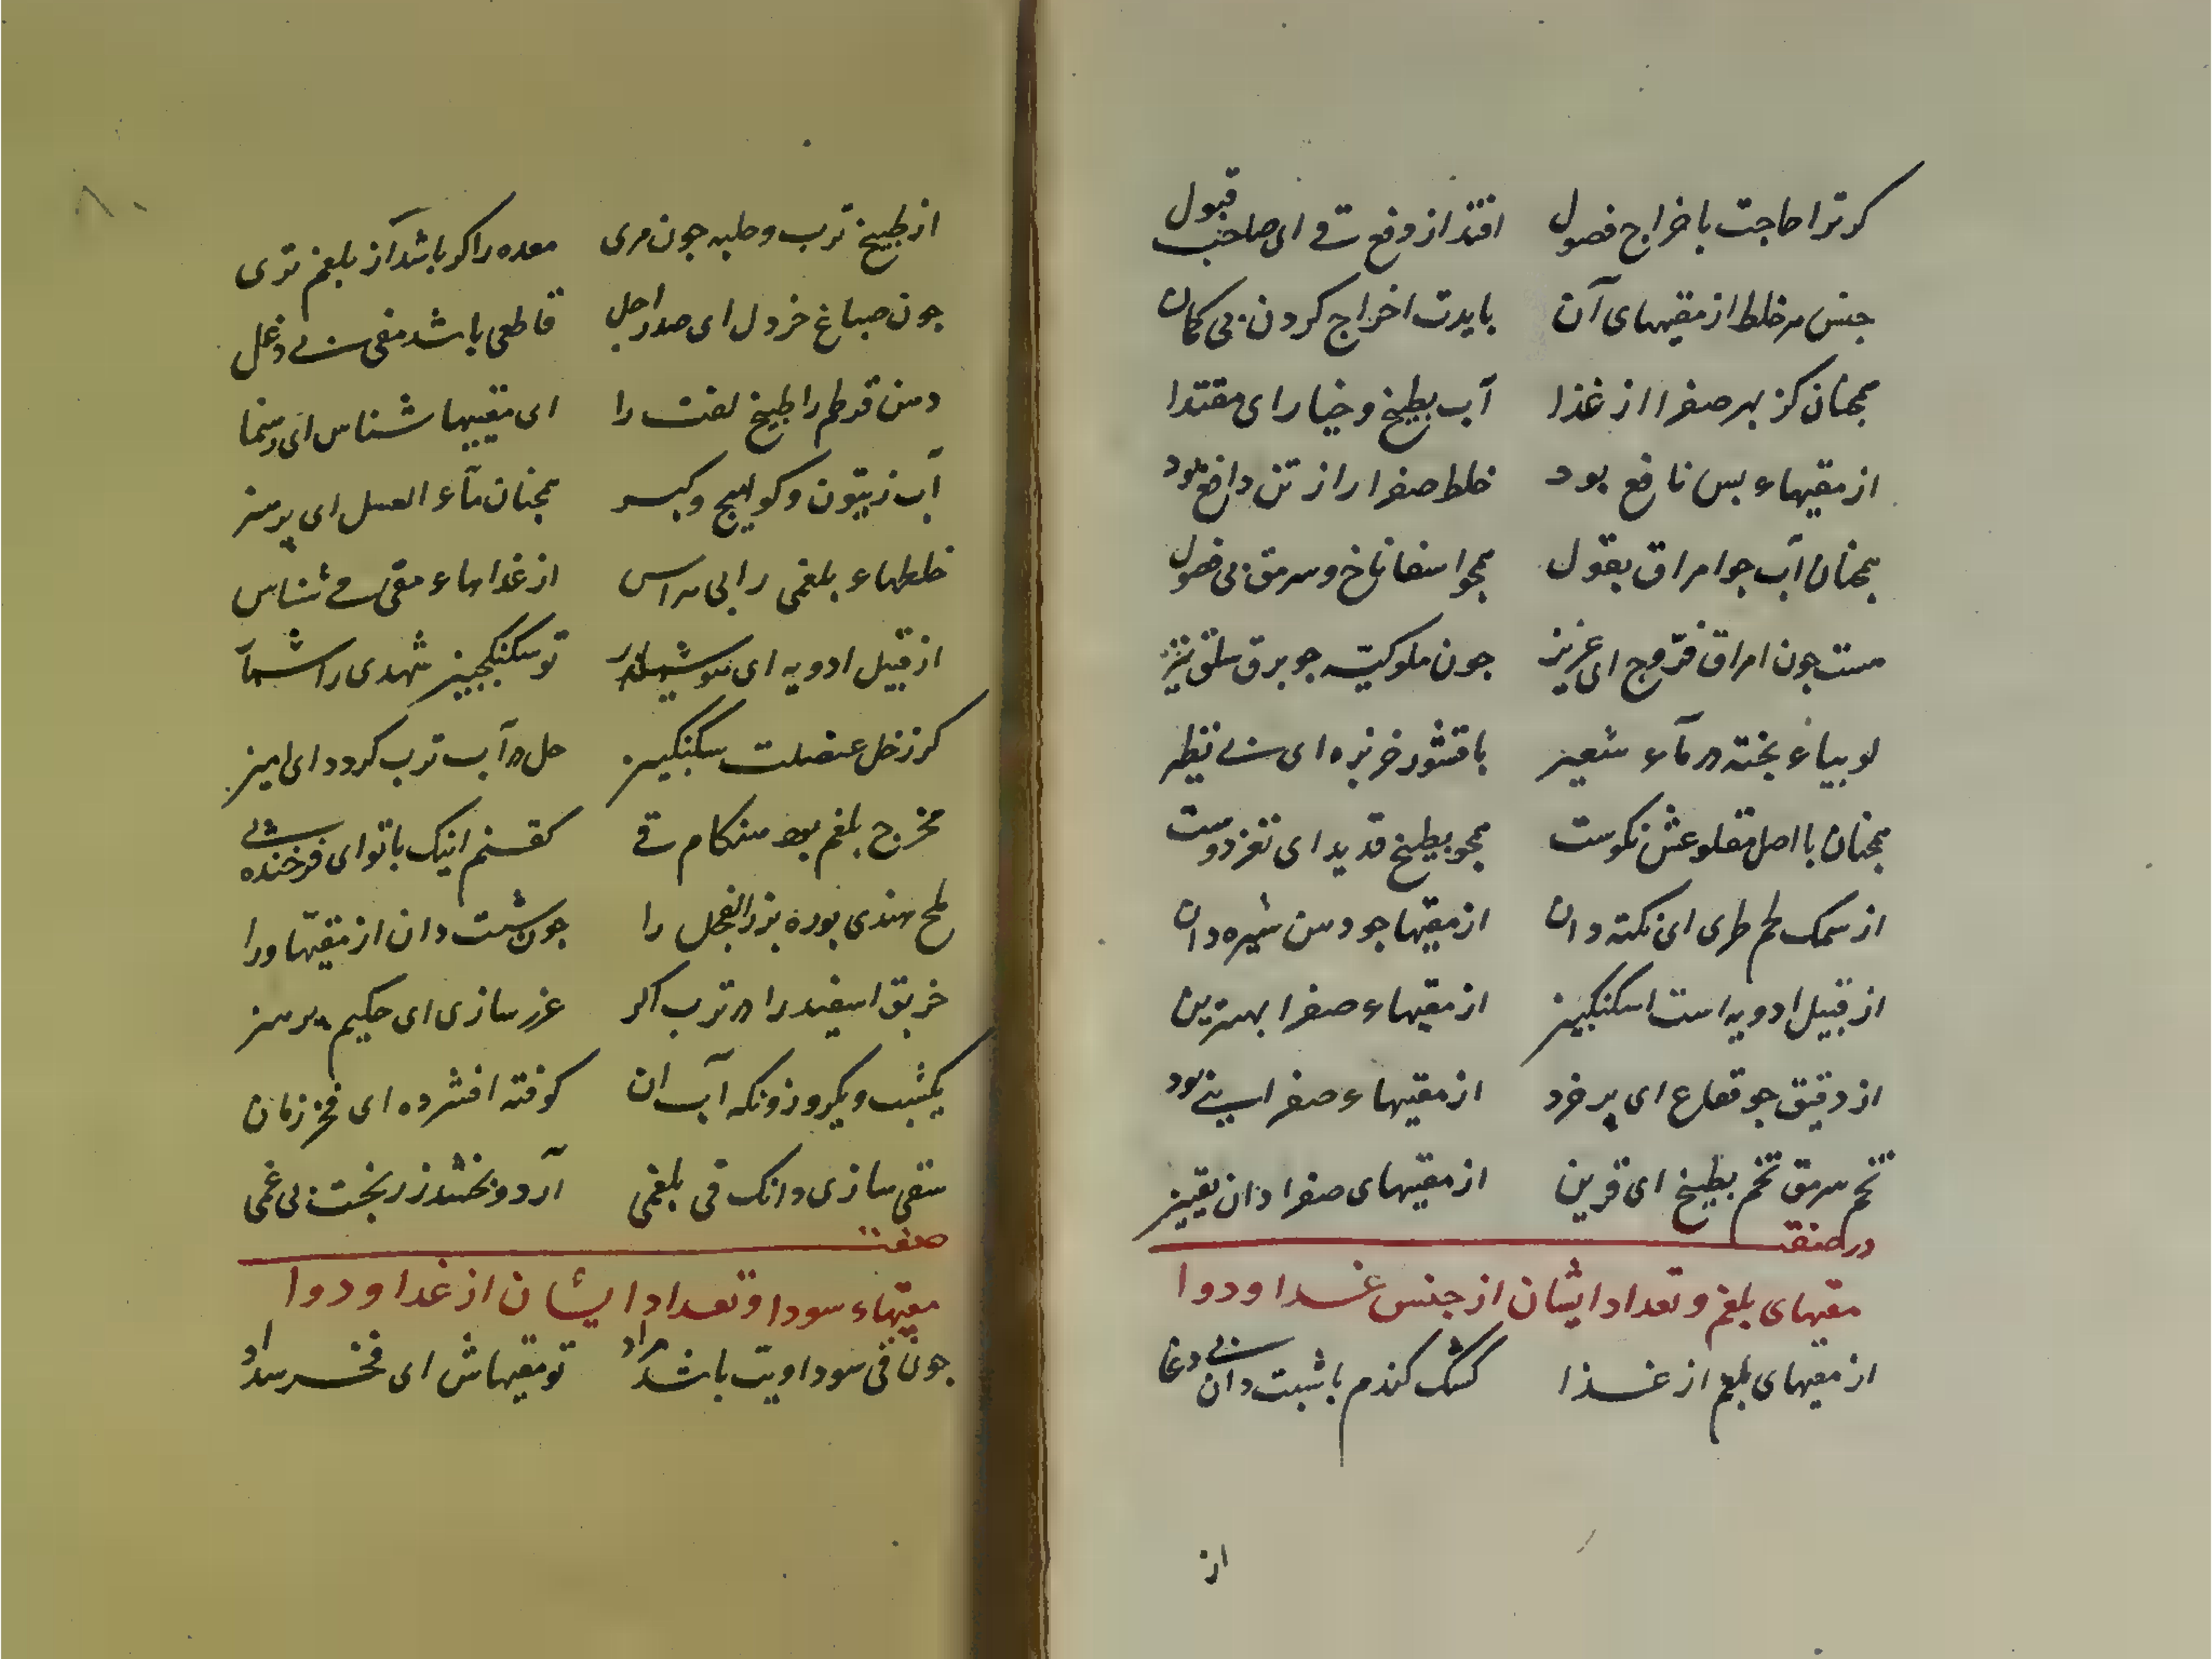 کر ترا حاجت باخراج فصول افتد از دفع قے ای صاحب قبول
جنس هر خلط از مقیهای آن بایدت اخراج کردن بی کمان
همجنان کز بهر صفرا از غذا آب بطیخ و خیار ای مقتدا
از مقیهاء بس نافع بود خلط صفرا را از تن دافع بود
همجنان آب جو امراق بقول همجو اسفاناخ و سرمق بی فضول
هست جون امراق فرّوج ای عزیز جون ملوکیّه جو برق سلق نیز
لوبیاء بخته در مآء شعیر با قشور خربزه ای بے نظیر
همجنان با اصل مقلوعش نکوست همجو بطیخ قدید ای نغز دوست
از سمک لحم طری ای نکته دان از مقیها جو دهن شیره دان
از قبیل ادویه است اسکنکبین از مقیهاء صفرا بهترین
از دقیق جو فقاع ای پر خرد از مقیهاء صفرا بود
تخم سرمق تخم بطیخ ای قرین از مقیهای صفرا دان یقین
در صفت
مقیهای بلغم و تعداد ایشان از جنس غذا و دوا
از مقیهای بلغم از غذا کشک کندم با شبت دان بے دغا
از
۸۰
از طبیخ ترب و حلبه جون مری معده را کر باشد آن بلغم تری
جون صباغ خردل ای صدر اجل قاطعی باشد مقی بے دغل
دهن قرطم را طبیخ لفت را ای مقییها شناس ای رهنما
آب زیتون و کوامیج و کبر همجنان مآء العسل ای پر هنر
خلطهاء بلغمی را بی هراس از غذاهاء مقی مے شناس
از قبیل ادویه ای توسکنکبین شهدی را شمآر
کر ز خل عنصلت سکنکبین حل در آب ترب کردد ای امین
مخرج بلغم بود هنکام قے کفتم اینک با تو ای فرخنده پے
ملح هندی بوره بزر الفجل را جون شبت دان از مقیّها ورا
خربق اسفید را در ترب اکر غرز سازی ای حکیم پر هنر
یکشب و یکروز ونکه آب ان کوفته افشرده ای فخر زمان
سقی سازی وانک قی بلغمی آرد و بخشد ز رنجت بی غمی
صفت
مقیهاء سودا و تعداد ایشان از غذا و دوا
جون قی سوداویت باشد مراد تو مقیهاش ای فخر سداد